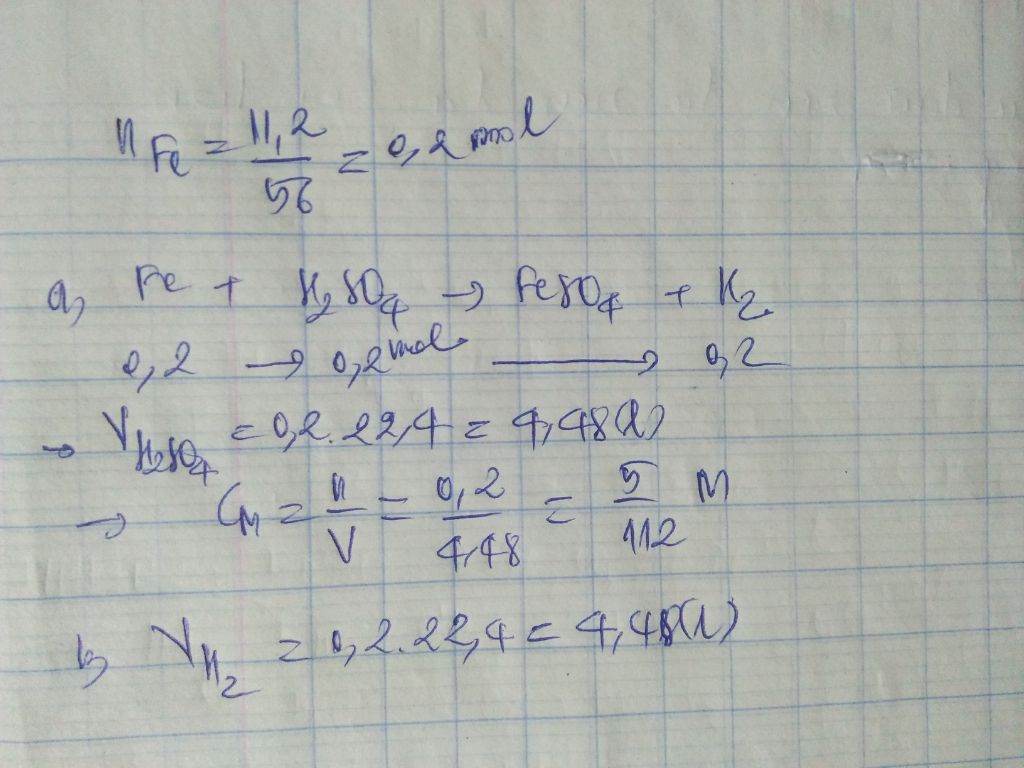 n Fe = 11,2 / 56 = 0,2 mol
a, Fe + H2SO4 → FeSO4 + H2
0,2 → 0,2 mol → 0,2
→ V H2SO4 = 0,2 . 22,4 = 4,48 (l)
→ CM = n / V = 0,2 / 4,48 = 5 / 112 M
b, V H2 = 0,2 . 22,4 = 4,48 (l)